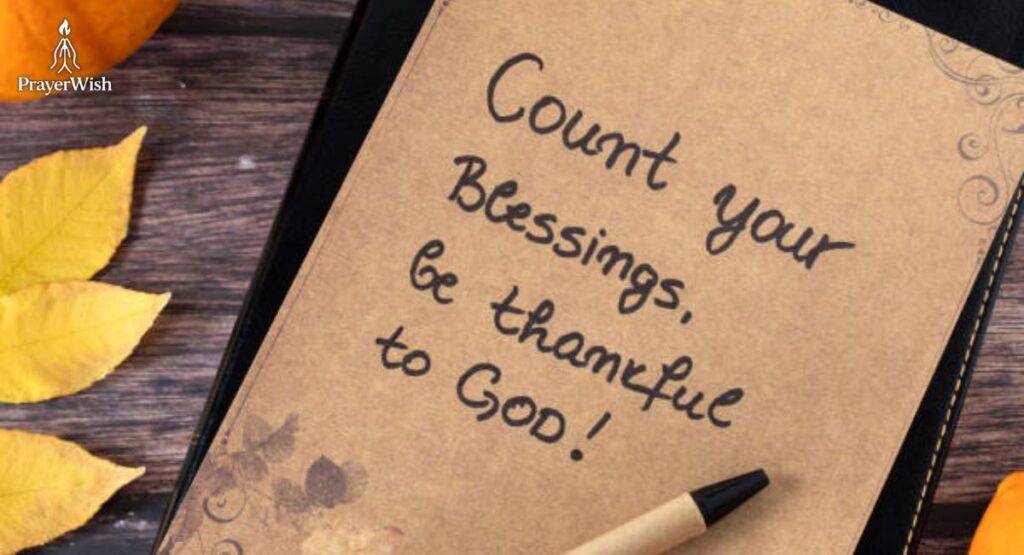 PrayerWish
Count your
Blessings,
be thankful
to GOD!